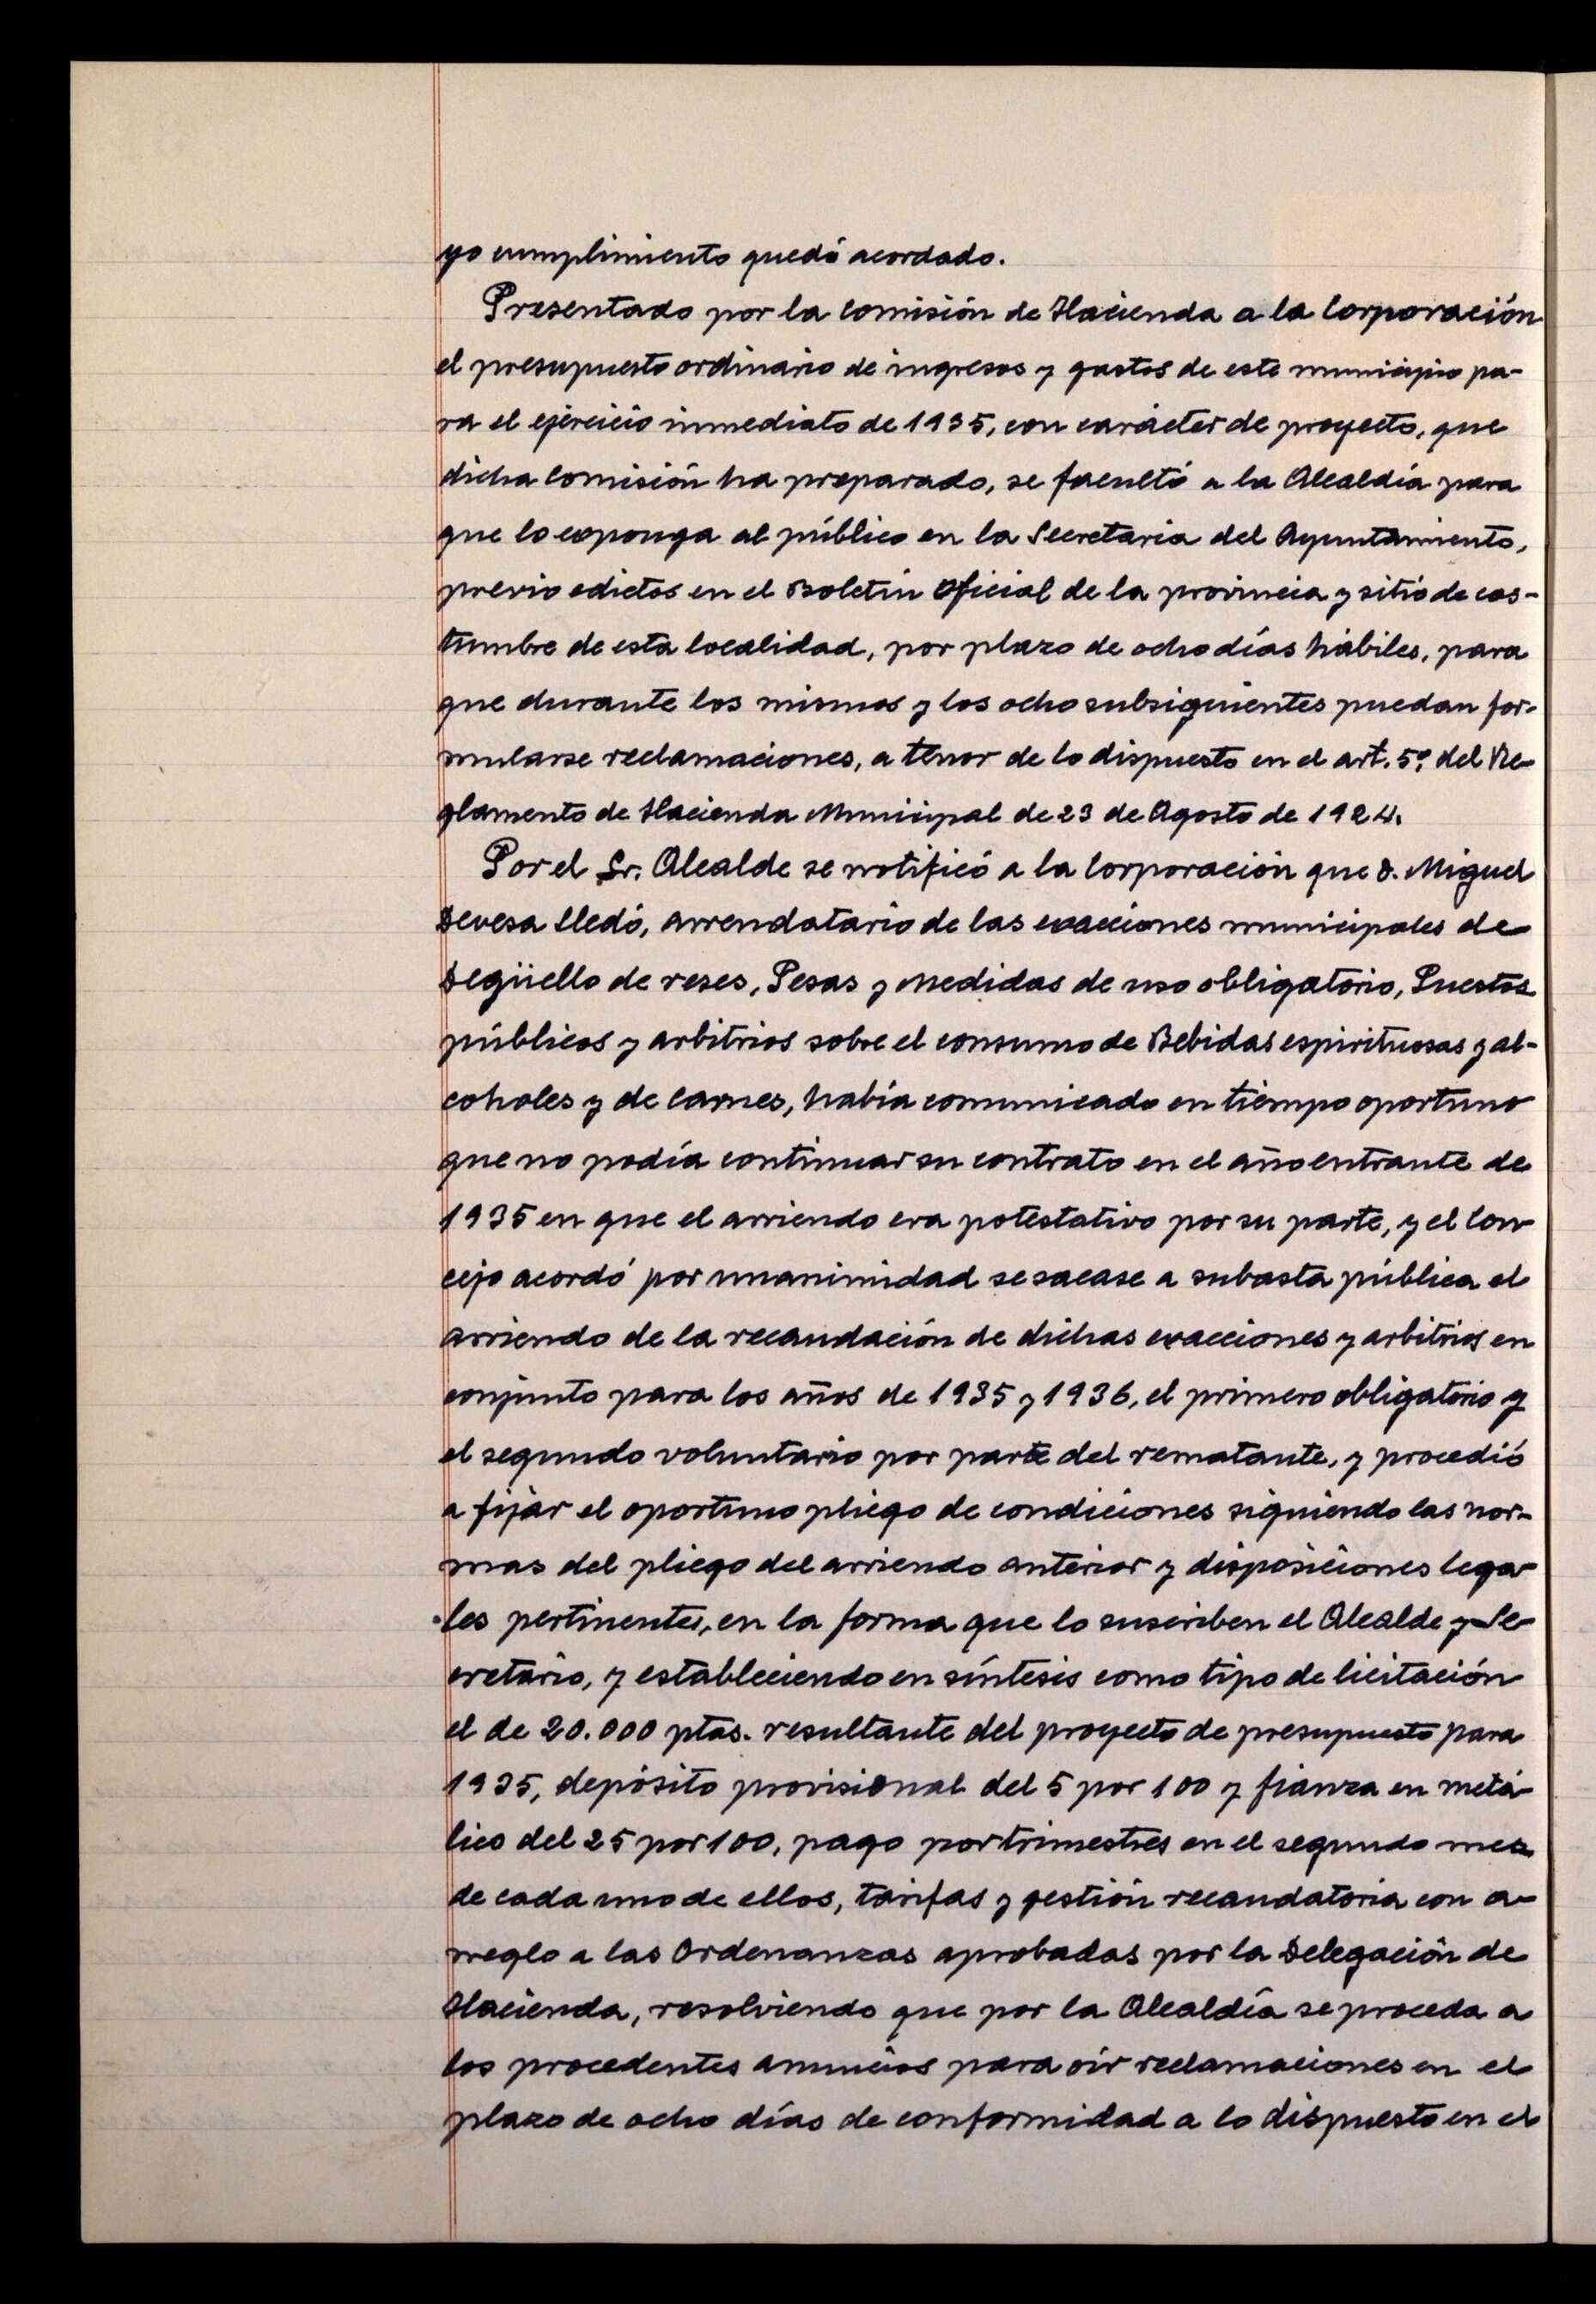 yo cumplimiento quedó acordado.
Presentado por la Comisión de Hacienda a la Corporación
el presupuesto ordinario de ingresos y gastos de este municipio pa-
ra el ejercicio inmediato de 1935, con carácter de proyecto, que
dicha Comisión ha preparado, se facultó a la Alcaldía para
que lo exponga al público en la Secretaria del Ayuntamiento,
previo edictos en el Boletín Oficial de la provincia y sitio de cos-
tumbre de esta localidad, por plazo de ocho días hábiles, para
que durante los mismos y los ocho subsiguientes puedan for-
mularse reclamaciones, a tenor de lo dispuesto en el art. 5º del Re-
glamento de Hacienda Municipal de 23 de Agosto de 1924.
Por el Sr. Alcalde se notificó a la Corporación que D. Miguel
Devesa Lledó, arrendatario de las exacciones municipales de
Degüello de reses, Pesas y Medidas de uso obligatorio, Puestos
públicos y arbitrios sobre el consumo de Bebidas espirituosas y al-
coholes y de Carnes, había comunicado en tiempo oportuno
que no podía continuar su contrato en el año entrante de
1935 en que el arriendo era potestativo por su parte, y el Con-
cejo acordó por unanimidad se sacase a subasta pública el
arriendo de la recaudación de dichas exacciones y arbitrios en
conjunto para los años de 1935 y 1936, el primero obligatorio y
el segundo voluntario por parte del rematante, y procedió
a fijar el oportuno pliego de condiciones siguiendo las nor-
mas del pliego del arriendo anterior y disposiciones lega-
les pertinentes, en la forma que lo suscriben el Alcalde y Se-
cretario, y estableciendo en síntesis como tipo de licitación
el de 20.000 ptas. resultante del proyecto de presupuesto para
1935, depósito provisional del 5 por 100 y fianza en metá-
lico del 25 por 100, pago por trimestres en el segundo mes
de cada uno de ellos, tarifas y gestión recaudatoria con a-
rreglo a las Ordenanzas aprobadas por la Delegación de
Hacienda, resolviendo que por la Alcaldía se proceda a
los procedentes anuncios para oir reclamaciones en el
plazo de ocho días de conformidad a lo dispuesto en el